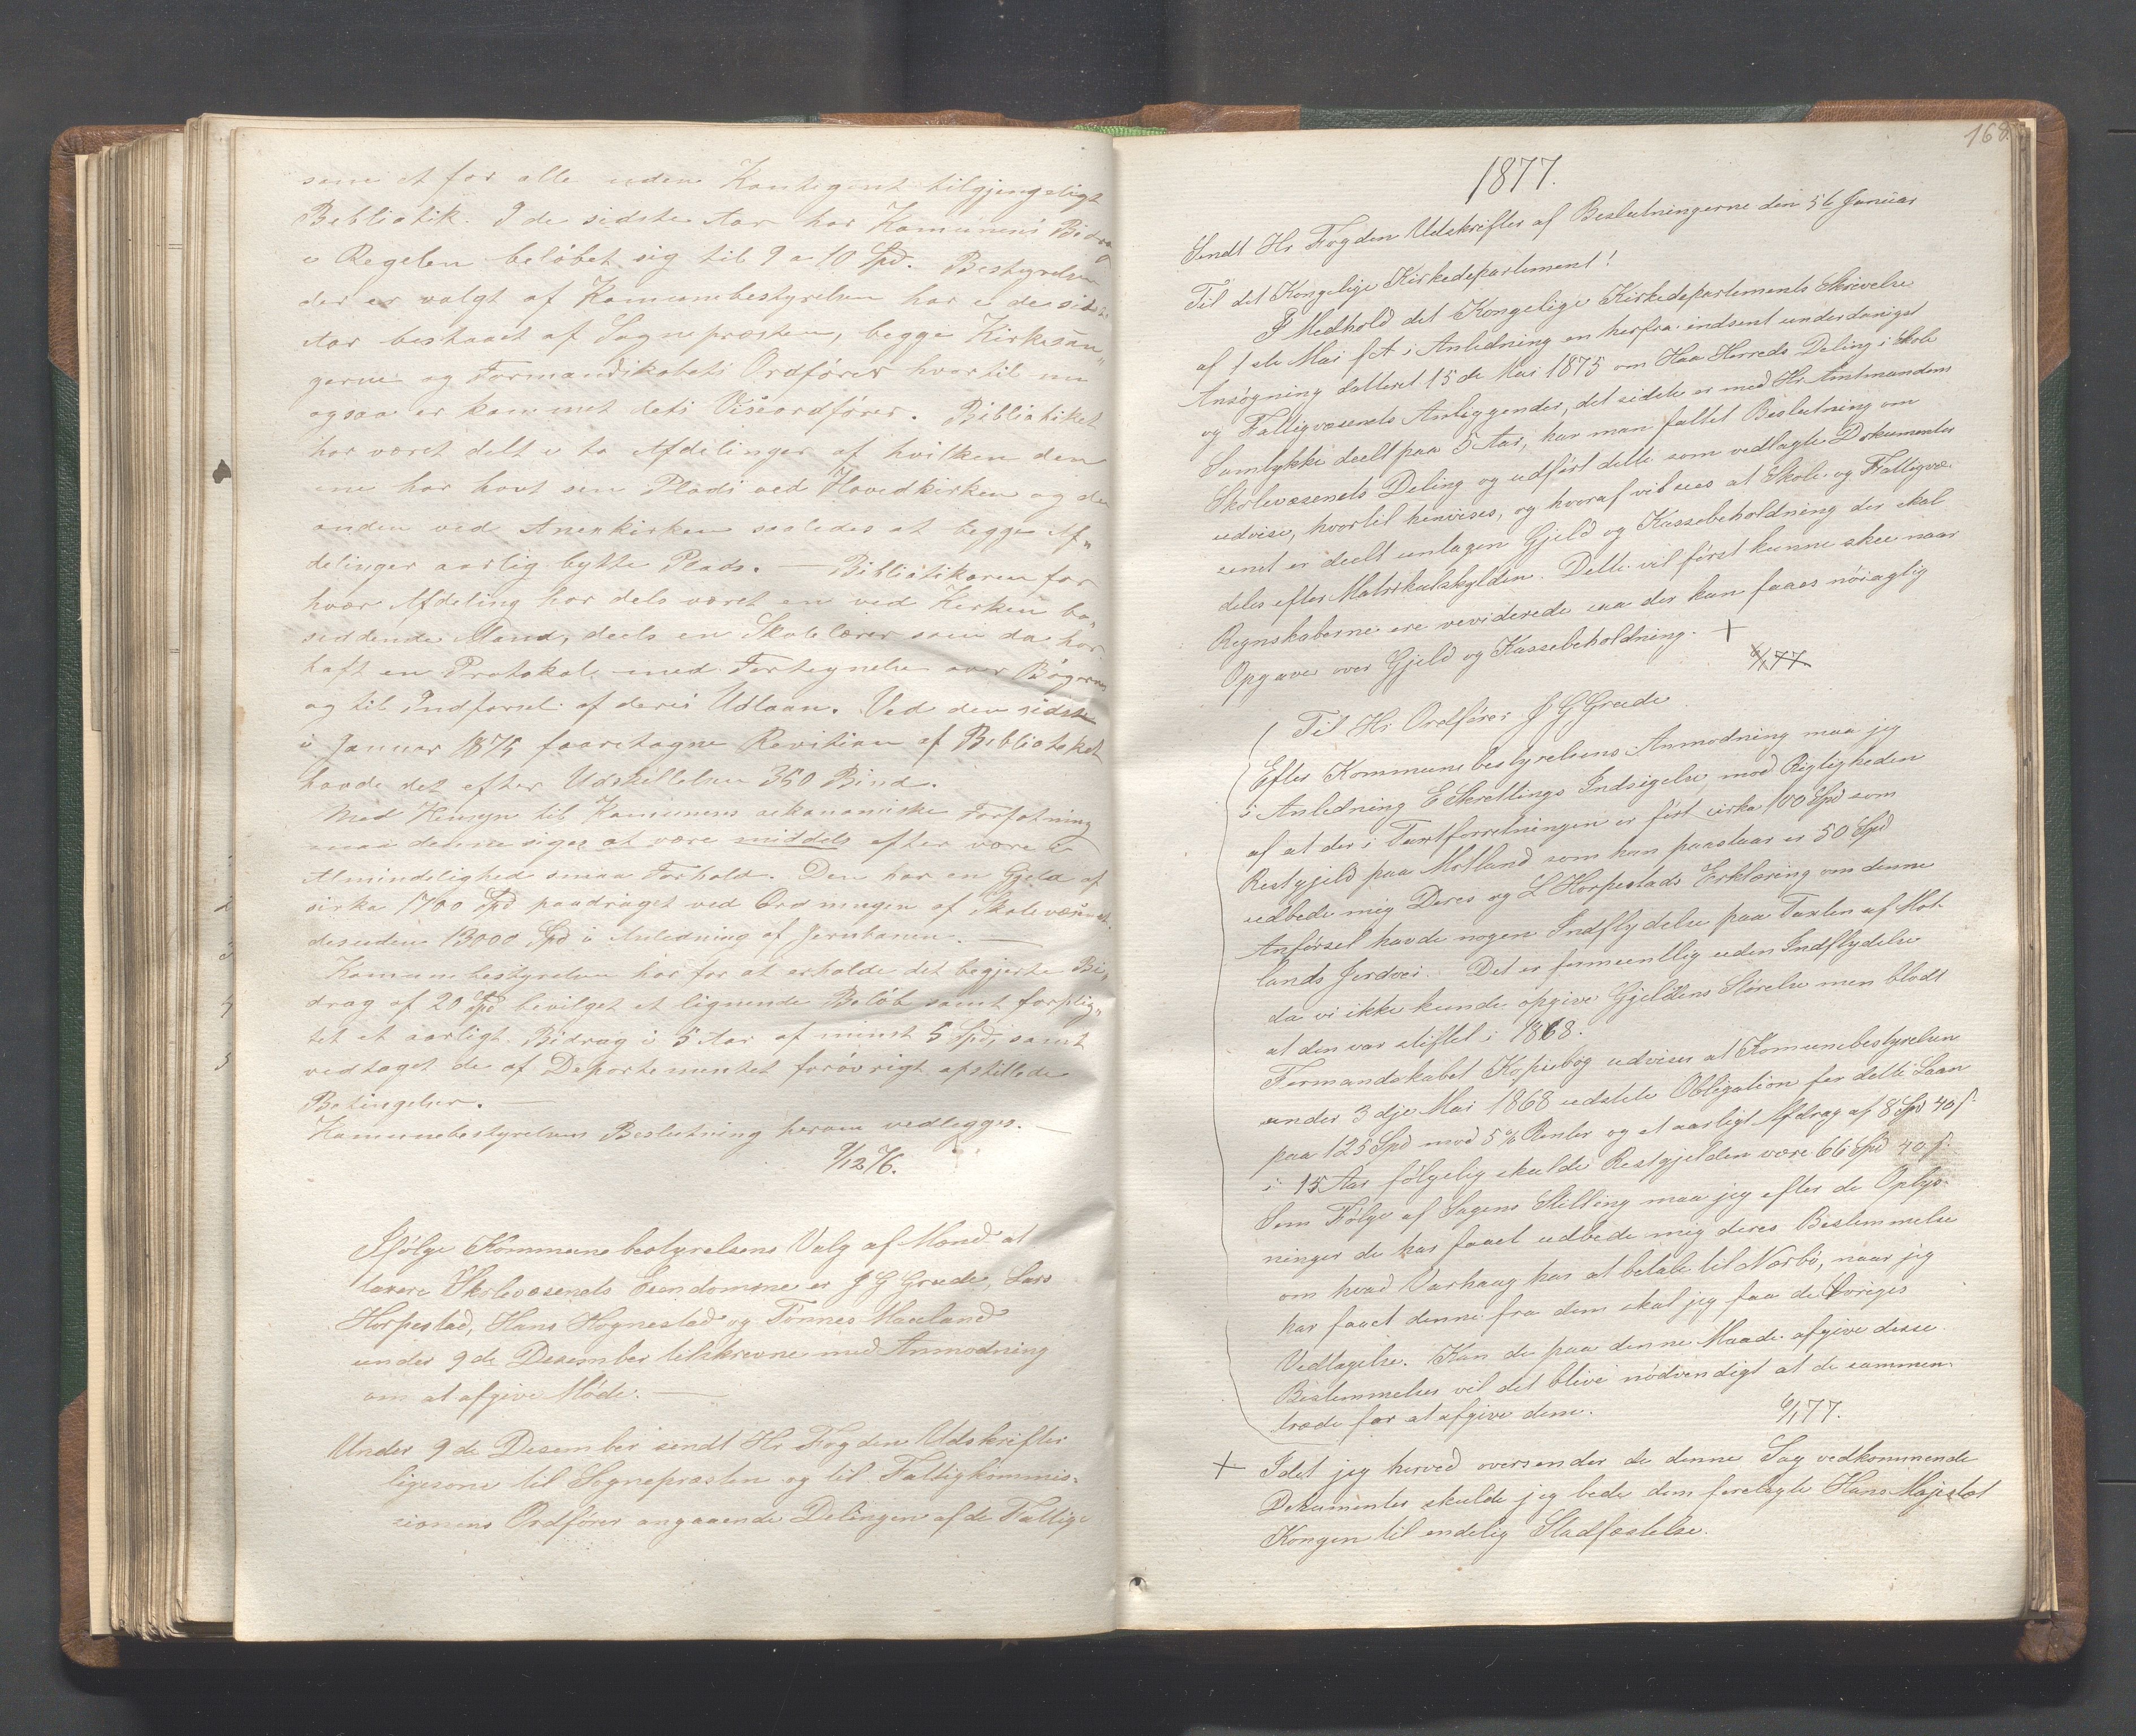 som et for alle uden Kontegent tilgjengeligt
Bibliotik. I de sidste Aar har Komunens Bidrag
i Regelen beløbet sig til 9 a 10 Spd. Bestyrelsen
der er valgt af Komunebestyrelsen har i de sidste
Aar bestaaet af Sognepræsten, begge Kirkesan„
gerne og Formandskabets Ordfører hvortil nu
ogsaa er kommet dets Viseordfører. Bibliotiket
har været delt i to Afdelinger af hvilken den
ene har havt sin Plads ved Hovedkirken og den
anden ved Anexkirken saaledes at begge Af„
delinger aarlig bytte Plads. — Bibliotikaren for
hver Afdeling har dels været en ved Kirken bo„
siddende Mand, deels en Skolelærer som da har
haft en Protokol med Fortegnelse over Bøgerne
og til Indførsel af deres Udlaan. Ved den sidste
i Januar 1875 foaretagne Revition af Biblioteket
havde det efter Udskillelsen 350 Bind.
Med Hensyn til Komunens økonomiske Forfatning
maa denne siges at være middels efter vore i
Almindelighed smaa Forhold. Den har en Gjeld af
sirka 1700 Spd paadraget ved Ordningen af Skolevæsenet
desuden 13000 Spd i Anledning af Jernbanen. —
Komunebestyrelsen har for at erholde det begjerte Bi„
drag af 20 Spd bevilget et lignende Beløb samt forplig„
tet et aarligt Bidrag i 5 Aar af minst 5 Spd, samt
vedtaget de af Departementet forøvrigt opstillede
Betingelser. —
Komunebestyrelsens Beslutning herom vedlegges. —
9/12 76.
Ifølge Kommunebestyrelsens Valg af Mænd at
taxere Skolevæsenets Eiendomme er J G Grude, Lars
Horpestad, Hans Hognestad og Tønnes Haaland
under 9de Desember tilskrevne med Anmodning
om at afgive Møde. —
Under 9de Desember sendt Hr Fogden Udskrifter
ligesom til Sognepræsten og til Fattigkommis-
sionens Ordfører angaaende Delingen af de Fattige
168.
1877.
Sendt Hr Fogden Udskrifter af Beslutningerne den 5te Januar
Til det Kongelige Kirkedepartement!
I Medhold det Kongelige Kirkedepartements Skrivelse
af 1ste Mai f A i Anledning en herfra indsent underdaniget
Ansøgning datteret 15de Mai 1875 om Haa Herreds Deling i Skole
og Fattigvæsenets Anliggender, det sidste er med Hr Amtmandens
Samtykke deelt paa 5 Aar, har man fattet Beslutning om
Skolevæsenets Deling og udført dette som vedlagte Dokumenter
udvise, hvortil henvises, og hvoraf vil sees at Skole- og Fattigvæ-
senet er deelt untagen Gjeld og Kassebeholdning der skal
deles efter Matrikulskylden. Dette vil først kunne skee naar
Regnskaberne ere reviderede saa der kan faaes nøiagtig
Opgaver over Gjeld og Kassebeholdning. +
6/1 77
Til Hr Ordfører J G Grude
Efter Kommunebestyrelsens Anmodning maa jeg
i Anledning E Skrettings Indsigelse mod Rigtigheden
af at der i Taxtforretningen er ført cirka 100 Spd som
Restgjeld paa Motland som han paastaar er 50 Spd
udbede mig Deres og L Horpestads Erklæring om denne
Anførsel havde nogen Indflydelse paa Taxten af Mot-
lands Jordvei. Det er formeentlig uden Indflydelse
da vi ikke kunde opgive Gjeldens Størelse men blodt
at den var stiftet i 1868.
Formandskabet Kopiebog udviser at Komunebestyrelsen
under 3dje Mai 1868 udstete Obligation for dette Laan
paa 125 Spd mod 5 % Renter og et aarligt Afdrag af 8 Spd 40 s
i 15 Aar følgelig skulde Restgjelden være 66 Spd 40 s.
Som Følge af Sagens Stilling maa jeg efter de Oplys-
ninger de har faaet udbede mig deres Bestemmelse
om hvad Varhaug har at betale til Nærbø, naar jeg
har faaet denne fra dem skal jeg faa de Øvriges
Vedtagelse. Kan de paa denne Maade afgive disse
Bestemmelser vil det blive nødvendigt at de sammen-
træde for at afgive dem.
6/1 77.
+ Idet jeg herved oversender de denne Sag vedkommende
Dokumenter skulde jeg bede dem forelagte Hans Majestæt
Kongen til endelig Stadfæstelse.